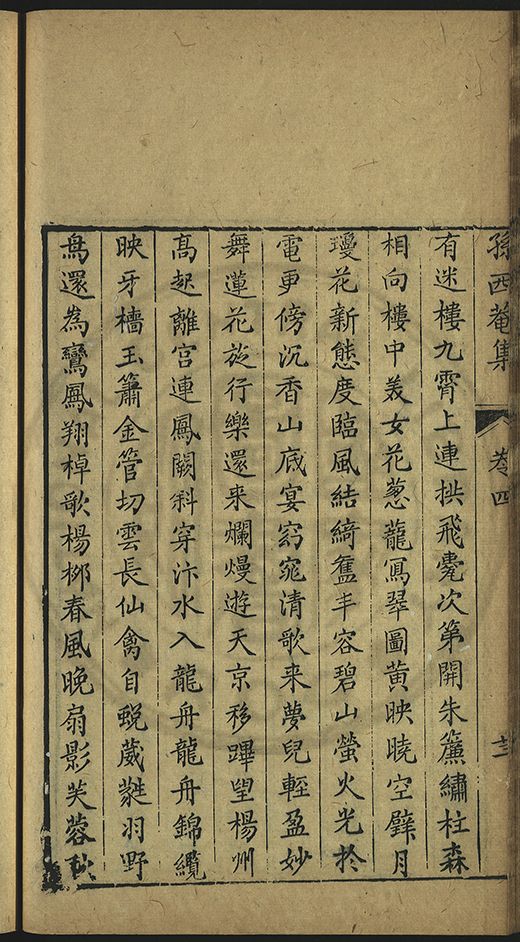 孫西菴集 卷四 十三
有迷樓九霄上連拱飛甍次第開朱簾繡柱森
相向樓中美女花蔥蘢冩翠圖黃映曉空甓月
瓊花新態度臨風結綺舊丰容碧山螢火光於
電更傍沉香山底宴窈窕清歌来夢兒輕盈妙
舞蓮花旋行樂還来爛熳遊天京移蹕望楊州
高起離宮連鳳闕斜穿汴水入龍舟龍舟錦纜
映牙檣玉簫金管切雲長仙禽自蛻葳蕤羽野
鳥還為鸞鳳翔棹歌楊栁春風晚扇影芙蓉秋